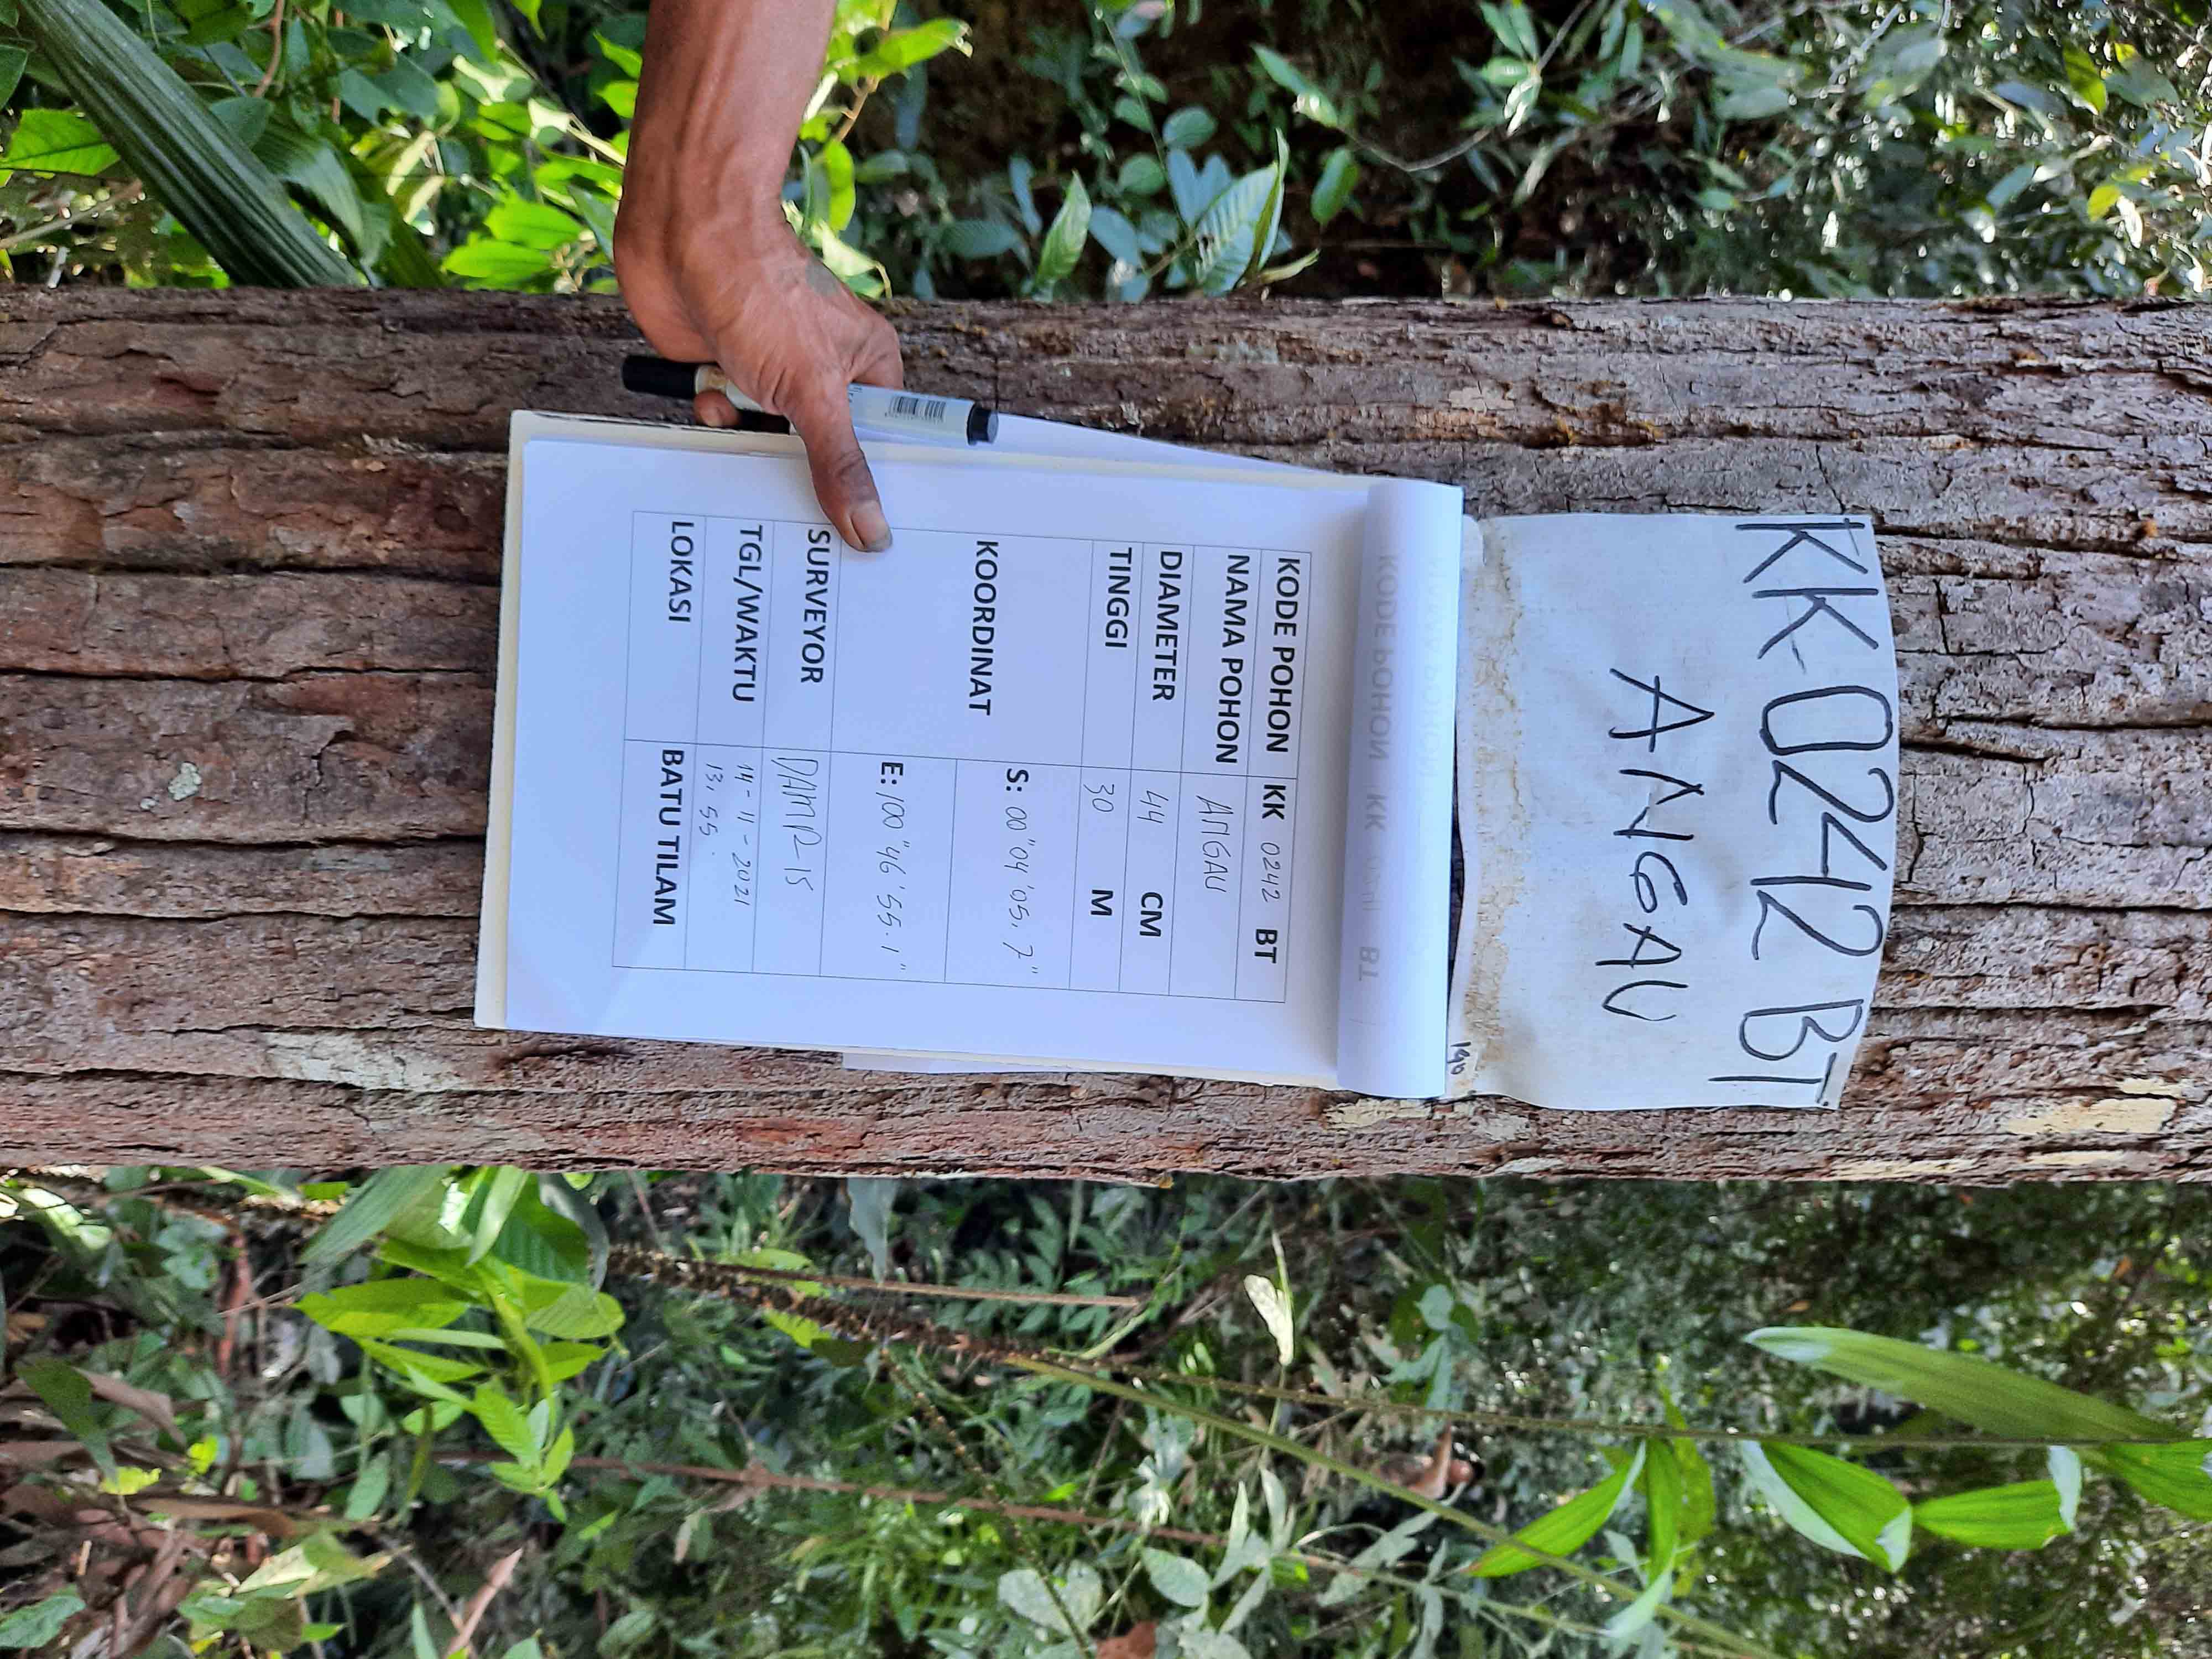 KK-0242 BT
ANGAU
190
KODE POHON KK 0242 BT
NAMA POHON ANGAU
DIAMETER 44 CM
TINGGI 30 M
KOORDINAT S: 00" 04' 05,7"
E: 100" 46' 55.1"
SURVEYOR DAMP-15
TGL/WAKTU 14-11-2021
13,55.
LOKASI BATU TILAM